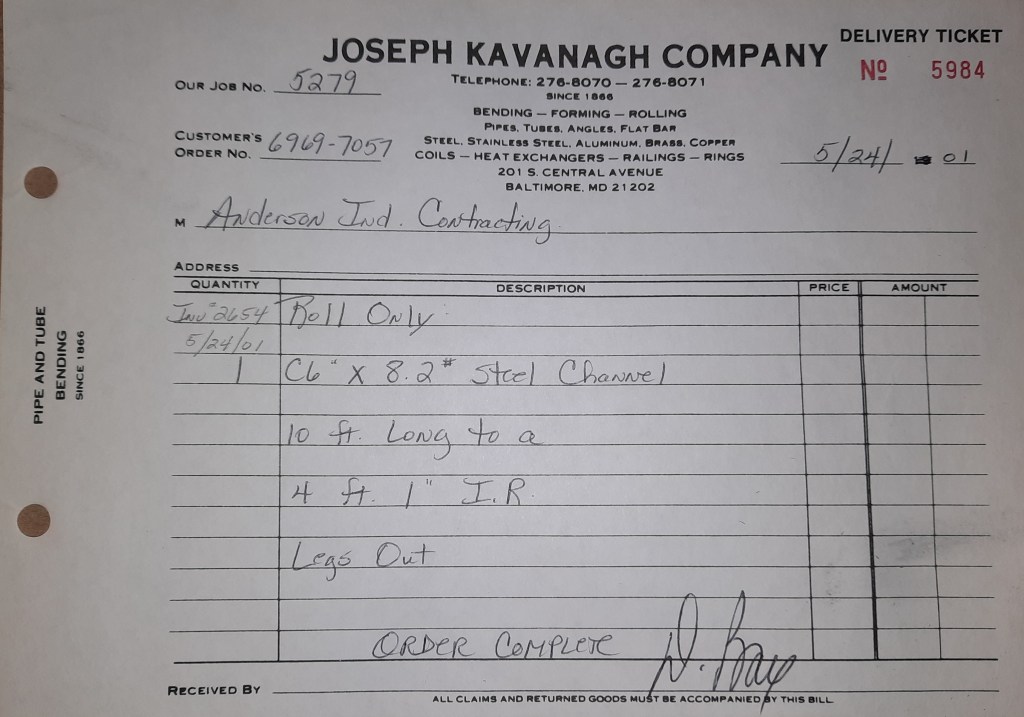 DELIVERY TICKET
JOSEPH KAVANAGH COMPANY
Nº 5984
OUR JOB NO. 5279
TELEPHONE: 276-8070 — 276-8071
SINCE 1866
BENDING — FORMING — ROLLING
PIPES, TUBES, ANGLES, FLAT BAR
CUSTOMER'S
ORDER NO. 6969-7057
STEEL, STAINLESS STEEL, ALUMINUM, BRASS, COPPER
COILS — HEAT EXCHANGERS — RAILINGS — RINGS
5/24/ 01
201 S. CENTRAL AVENUE
BALTIMORE, MD 21202
M Anderson Ind. Contracting
ADDRESS
QUANTITY DESCRIPTION PRICE AMOUNT
Inv # 2654 Roll Only
5/24/01
1 C6" X 8.2# Steel Channel
10 ft. Long to a
4 ft. 1" I.R.
Legs Out
ORDER COMPLETE
RECEIVED BY
ALL CLAIMS AND RETURNED GOODS MUST BE ACCOMPANIED BY THIS BILL
PIPE AND TUBE
BENDING
SINCE 1866